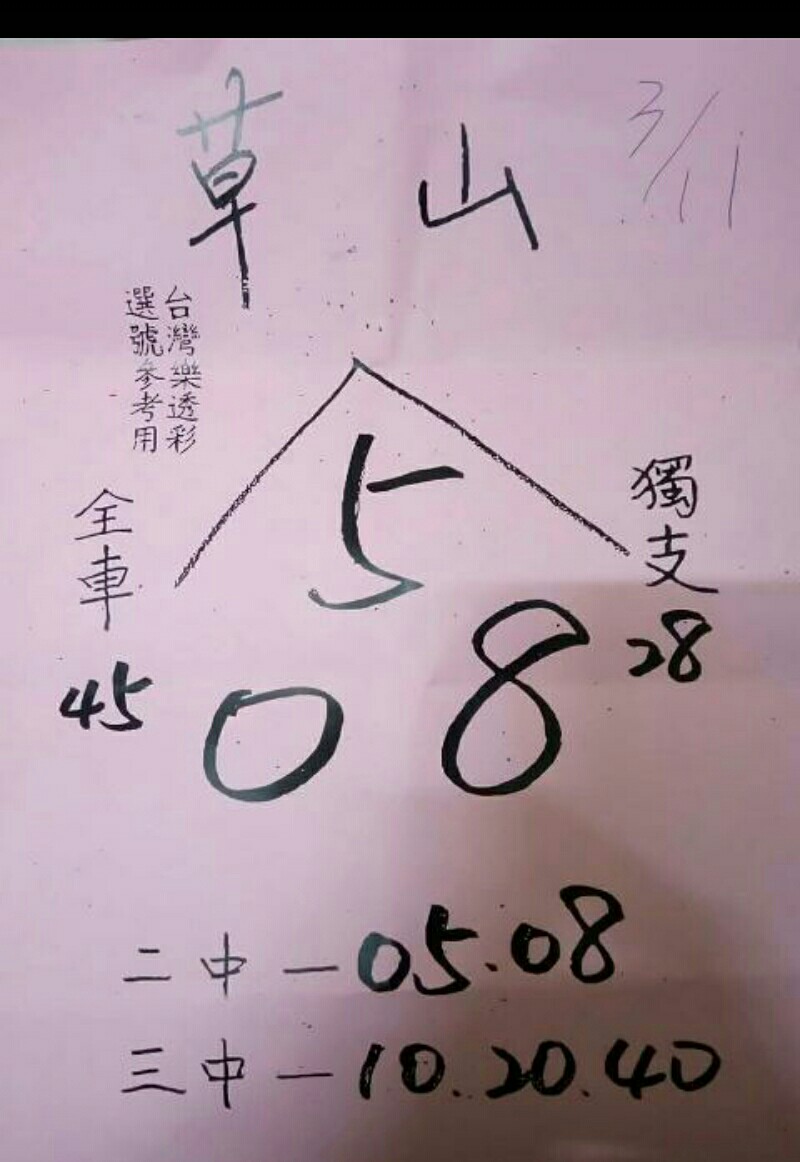 草山 3/11
台灣樂透彩
選號參考用
5
全車
獨支
28
45
0 8
二中－05.08
三中－10.20.40